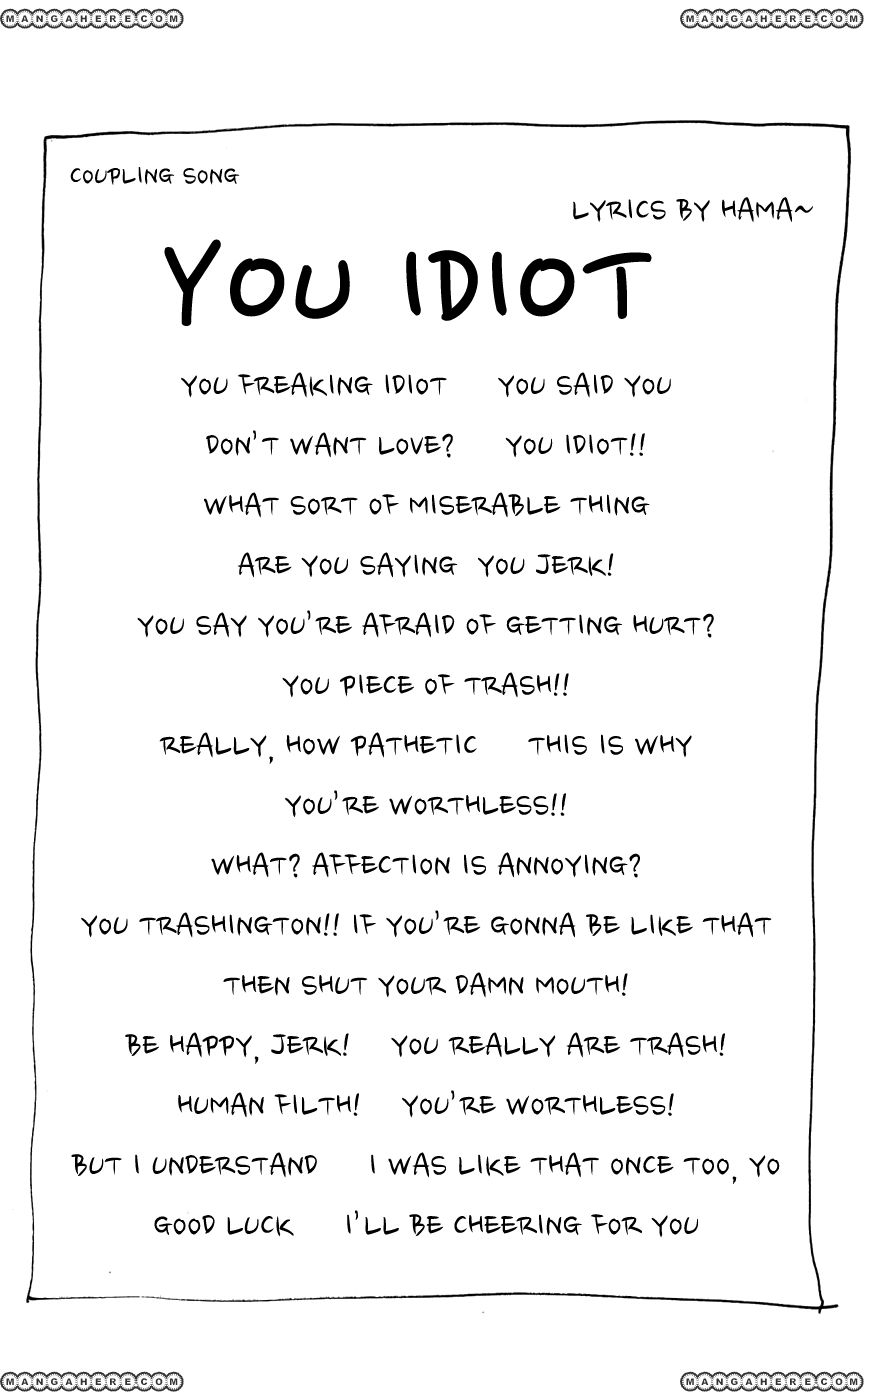 MANGAHERE.COM MANGAHERE.COM
COUPLING SONG
LYRICS BY HAMA~
YOU IDIOT
YOU FREAKING IDIOT YOU SAID YOU
DON'T WANT LOVE? YOU IDIOT!!
WHAT SORT OF MISERABLE THING
ARE YOU SAYING YOU JERK!
YOU SAY YOU'RE AFRAID OF GETTING HURT?
YOU PIECE OF TRASH!!
REALLY, HOW PATHETIC THIS IS WHY
YOU'RE WORTHLESS!!
WHAT? AFFECTION IS ANNOYING?
YOU TRASHINGTON!! IF YOU'RE GONNA BE LIKE THAT
THEN SHUT YOUR DAMN MOUTH!
BE HAPPY, JERK! YOU REALLY ARE TRASH!
HUMAN FILTH! YOU'RE WORTHLESS!
BUT I UNDERSTAND I WAS LIKE THAT ONCE TOO, YO
GOOD LUCK I'LL BE CHEERING FOR YOU
MANGAHERE.COM MANGAHERE.COM